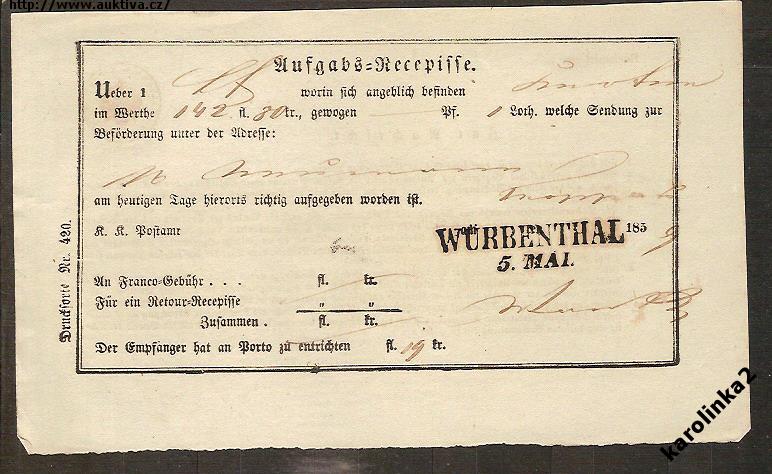 http://www.auktiva.cz/
Aufgabs-Recepisse.
Ueber 1 worin sich angeblich befinden
im Werthe 142 fl. 80 kr., gewogen — Pf. 1 Loth. welche Sendung zur
Beförderung unter der Adresse:
am heutigen Tage hierorts richtig aufgegeben worden ist.
K. K. Postamt WÜRBENTHAL 185
5. MAI.
An Franco-Gebühr . . . fl. kr.
Für ein Retour-Recepisse „ „
Zusammen . fl. kr.
Der Empfänger hat an Porto zu entrichten fl. 19 kr.
Drucksorte Nr. 420.
karolinka2